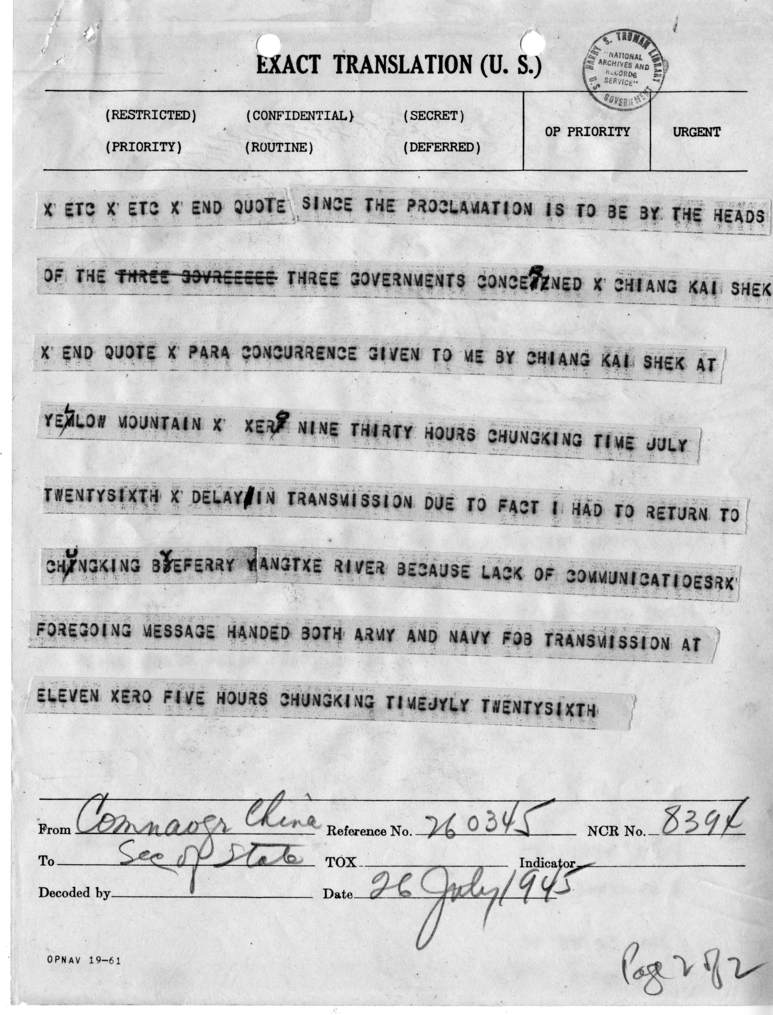 EXACT TRANSLATION (U. S.)
HARRY S. TRUMAN LIBRARY
"NATIONAL
ARCHIVES AND
RECORDS
SERVICE"
U.S. GOVERNMENT
(RESTRICTED) (CONFIDENTIAL) (SECRET)
OP PRIORITY URGENT
(PRIORITY) (ROUTINE) (DEFERRED)
X' ETC X' ETC X' END QUOTE SINCE THE PROCLAMATION IS TO BE BY THE HEADS
OF THE THREE GOVREEEEE THREE GOVERNMENTS CONCERNED X' CHIANG KAI SHEK
X' END QUOTE X' PARA CONCURRENCE GIVEN TO ME BY CHIANG KAI SHEK AT
YELLOW MOUNTAIN X' XERO NINE THIRTY HOURS CHUNGKING TIME JULY
TWENTYSIXTH X' DELAY/IN TRANSMISSION DUE TO FACT I HAD TO RETURN TO
CHUNGKING BYEFERRY YANGTXE RIVER BECAUSE LACK OF COMMUNICATIOESRX'
FOREGOING MESSAGE HANDED BOTH ARMY AND NAVY FOB TRANSMISSION AT
ELEVEN XERO FIVE HOURS CHUNGKING TIMEJYLY TWENTYSIXTH
From Comnavgr China Reference No. 260345 NCR No. 8394
To Sec of State TOX Indicator
Decoded by Date 26 July 1945
OPNAV 19-61
Page 2 of 2